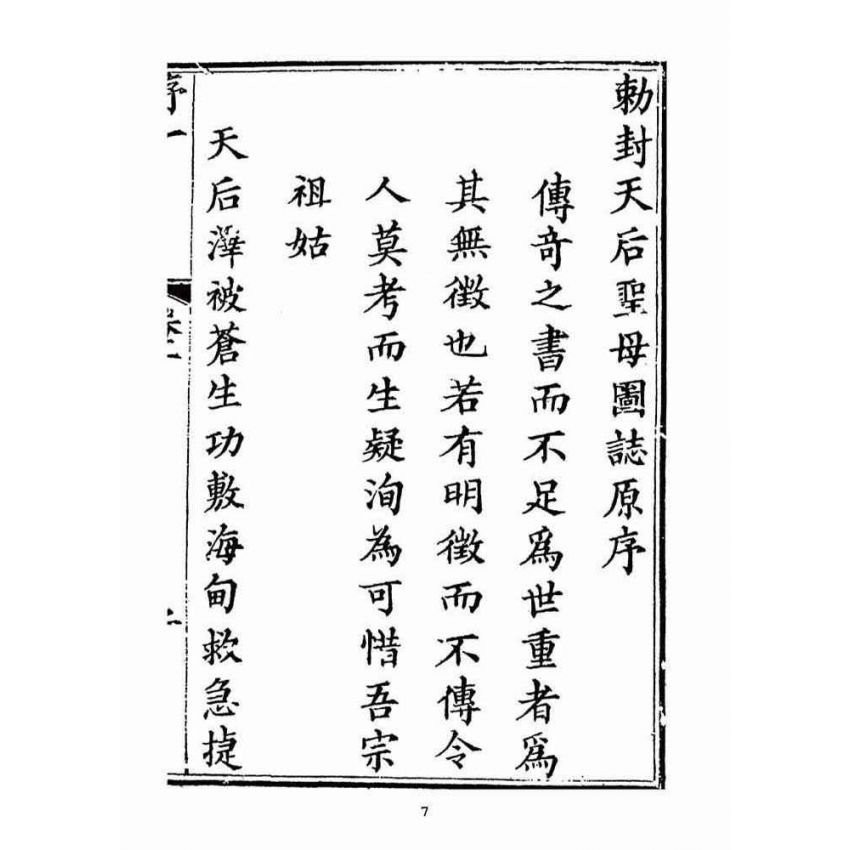 勅封天后聖母圖誌原序
傳奇之書而不足爲世重者爲
其無徵也若有明徵而不傳令
人莫考而生疑洵為可惜吾宗
祖姑
天后澤被蒼生功敷海甸救急捷
序一
7